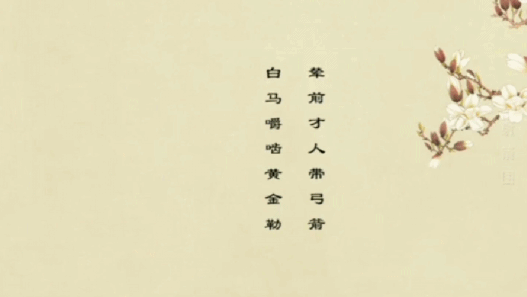 辇前才人带弓箭
白马嚼啮黄金勒